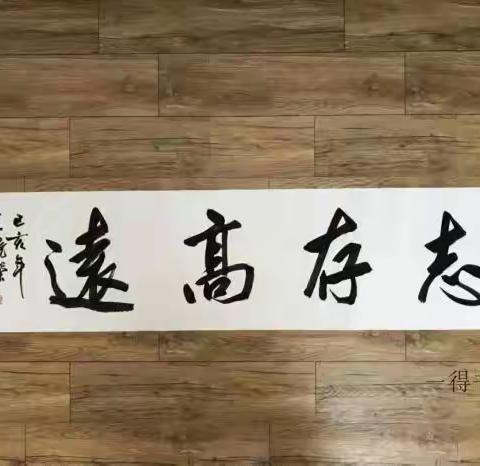 志存高遠
己亥年
一得